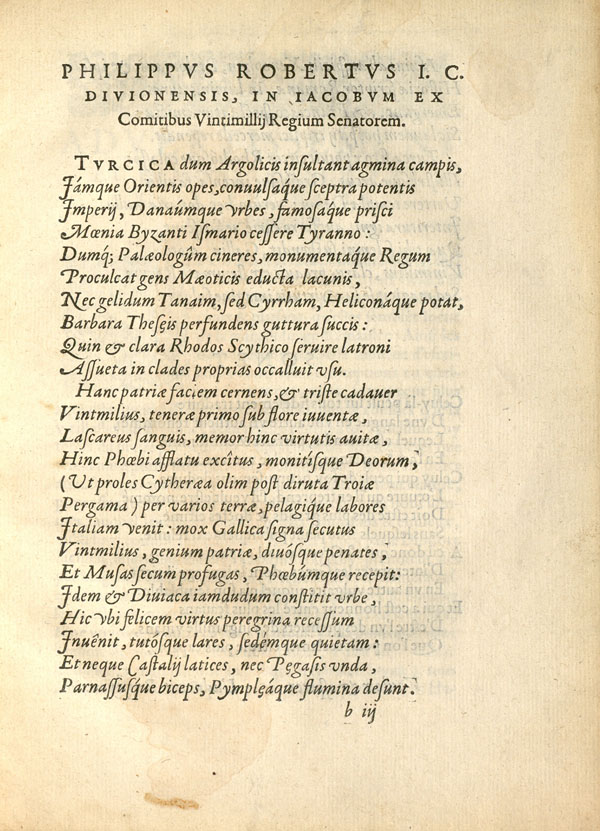 PHILIPPVS ROBERTVS I. C.
DIVIONENSIS, IN IACOBVM EX
Comitibus Vintimillij Regium Senatorem.
TVRCICA dum Argolicis inſultant agmina campis,
Jámque Orientis opes, conuulſaq́ue ſceptra potentis
Jmperij, Danaúmque vrbes, famoſaq́ue priſci
Mœnia Byzanti Iſmario ceſſere Tyranno:
Dumq; Palæologûm cineres, monumentaq́ue Regum
Proculcat gens Mæoticis educta lacunis,
Nec gelidum Tanaim, ſed Cyrrham, Heliconáque potat,
Barbara Theſęis perfundens guttura ſuccis:
Quin & clara Rhodos Scythico ſeruire latroni
Aſſueta in clades proprias occalluit vſu.
Hanc patriæ faciem cernens, & triſte cadauer
Vintmilius, teneræ primo ſub flore iuuentæ,
Laſcareus ſanguis, memor hinc virtutis auitæ,
Hinc Phœbi afflatu excîtus, monitíſque Deorum,
(Ut proles Cytheræa olim poſt diruta Troiæ
Pergama) per varios terræ, pelagiq́ue labores
Jtaliam venit: mox Gallica ſigna ſecutus
Vintmilius, genium patriæ, diuóſque penates,
Et Muſas ſecum profugas, Phœbúmque recepit:
Jdem & Diuiaca iamdudum conſtitit vrbe,
Hic vbi felicem virtus peregrina receſſum
Jnuênit, tutóſque lares, ſedémque quietam:
Et neque Caſtalij latices, nec Pęgaſis vnda,
Parnaſſuſq́ue biceps, Pymplęáque flumina deſunt.
b iij